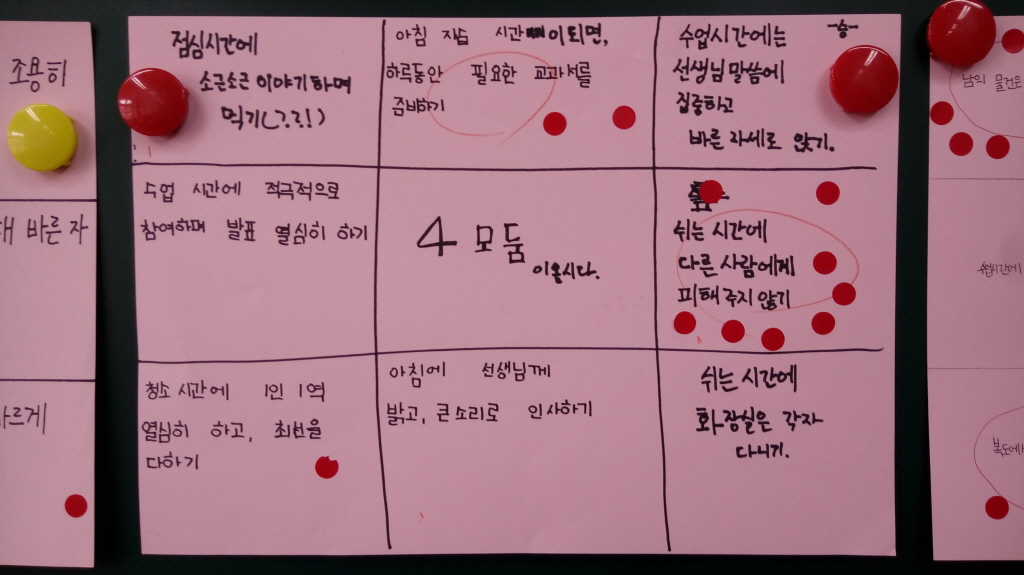 조용히
바른 자
르게
점심시간에
소근소근 이야기하며
먹기(??!)
아침 자습 시간이 되면,
하루동안 필요한 교과서를
준비하기
수업시간에는
선생님 말씀에
집중하고
바른 자세로 앉기.
수업 시간에 적극적으로
참여하며 발표 열심히 하기
4 모둠
이옵시다.
쉬는 시간에
다른 사람에게
피해 주지 않기
청소 시간에 1인 1역
열심히 하고, 최선을
다하기
아침에 선생님께
밝고, 큰 소리로 인사하기
쉬는 시간에
화장실은 각자
다니기.
남의 물건은
수업시간에